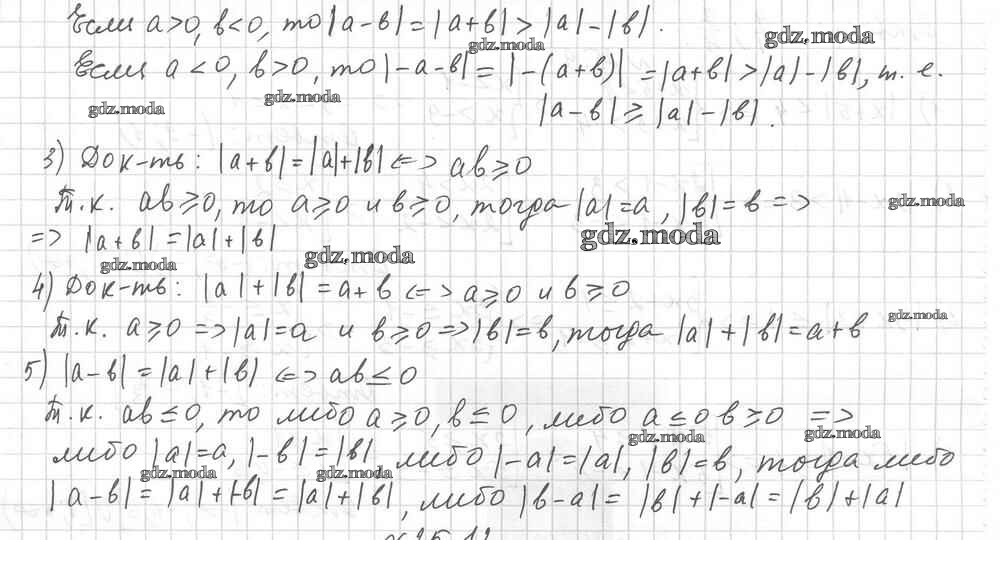 Если a>0, b<0, то |a-b| = |a+b| > |a|-|b|.
gdz.moda
gdz.moda
Если a<0, b>0, то |-a-b| = |-(a+b)| = |a+b| > |a|-|b|, т. е.
gdz.moda
gdz.moda
|a-b| ≥ |a|-|b|.
3) Док-ть: |a+b| = |a|+|b| <=> ab≥0
Т.к. ab≥0, то a≥0 и b≥0, тогда |a|=a, |b|=b =>
gdz.moda
=> |a+b| = |a|+|b|
gdz.moda
gdz.moda
gdz.moda
4) Док-ть: |a|+|b| = a+b <=> a≥0 и b≥0
gdz.moda
Т.к. a≥0 => |a|=a и b≥0 => |b|=b, тогда |a|+|b|=a+b
5) |a-b| = |a|+|b| <=> ab≤0
Т.к. ab≤0, то либо a≥0, b≤0, либо a≤0 b≥0 =>
gdz.moda
gdz.moda
либо |a|=a, |-b|=|b|, либо |-a|=|a|, |b|=b, тогда либо
gdz.moda
gdz.moda
|a-b| = |a|+|-b| = |a|+|b|, либо |b-a| = |b|+|-a| = |b|+|a|